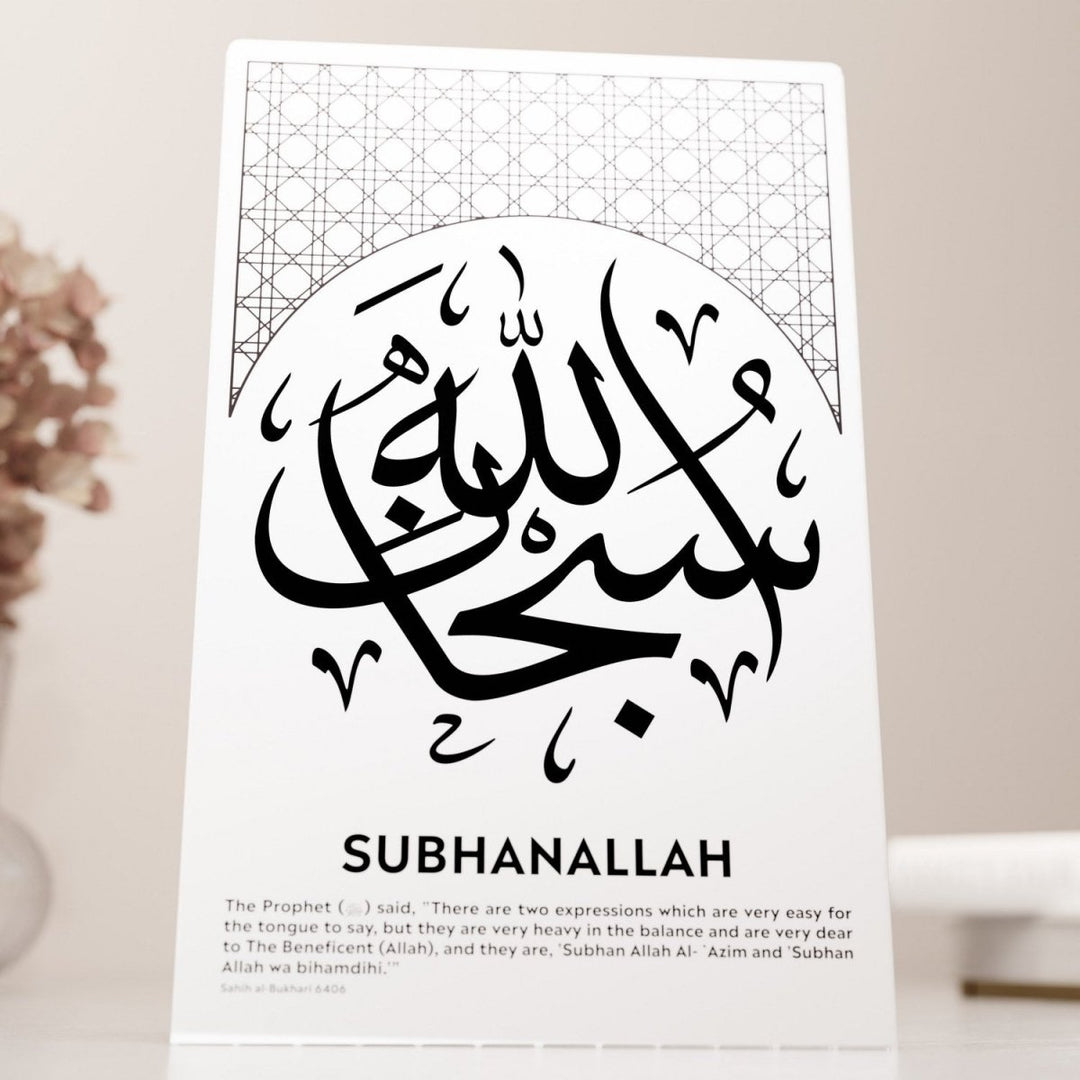 سُبْحَانَ اللّٰهِ
SUBHANALLAH
The Prophet (ﷺ) said, "There are two expressions which are very easy for
the tongue to say, but they are very heavy in the balance and are very dear
to The Beneficent (Allah), and they are, 'Subhan Allah Al- `Azim and 'Subhan
Allah wa bihamdihi.'"
Sahih al-Bukhari 6406